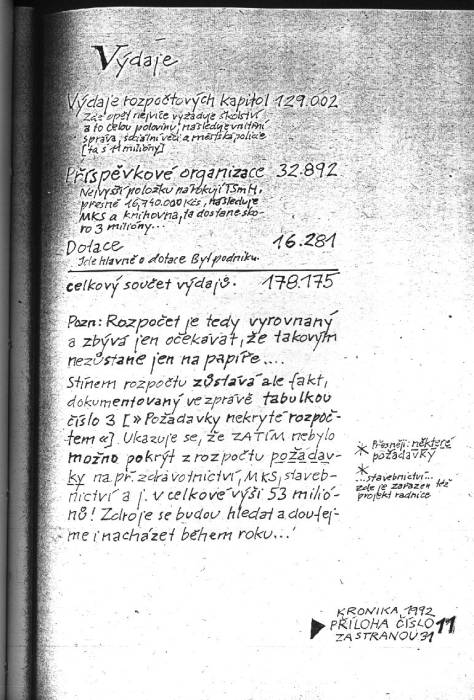 Výdaje
Výdaje rozpočtových kapitol 129.002
Zde opět nejvíce vyžaduje školství
a to celou polovinu, následuje vnitřní
správa, sociální věci a městská policie
[ta s 11 miliony]
Příspěvkové organizace 32.892
Nejvyšší položku nárokují TSmH,
přesně 16,740.000 Kčs, následuje
MKS a knihovna, ta dostane sko-
ro 3 miliony...
Dotace 16.281
Jde hlavně o dotace Bytpodniku.
celkový součet výdajů. 178.175
Pozn: Rozpočet je tedy vyrovnaný
a zbývá jen očekávat, že takovým
nezůstane jen na papíře....
Stínem rozpočtu zůstává ale fakt,
dokumentovaný ve zprávě tabulkou
číslo 3 [»Požadavky nekryté rozpoč-
tem«]. Ukazuje se, že ZATÍM nebylo
možno pokrýt z rozpočtu požadav-
ky na př. zdravotnictví, MKS, staveb-
nictví a j. v celkové výši 53 milió-
nů! Zdroje se budou hledat a doufej-
me i nacházet během roku...
* Přesněji: některé
požadavky
*
...stavebnictví...
zde je zařazen též
projekt radnice
KRONIKA 1992
PŘÍLOHA ČÍSLO 11
ZA STRANOU 31